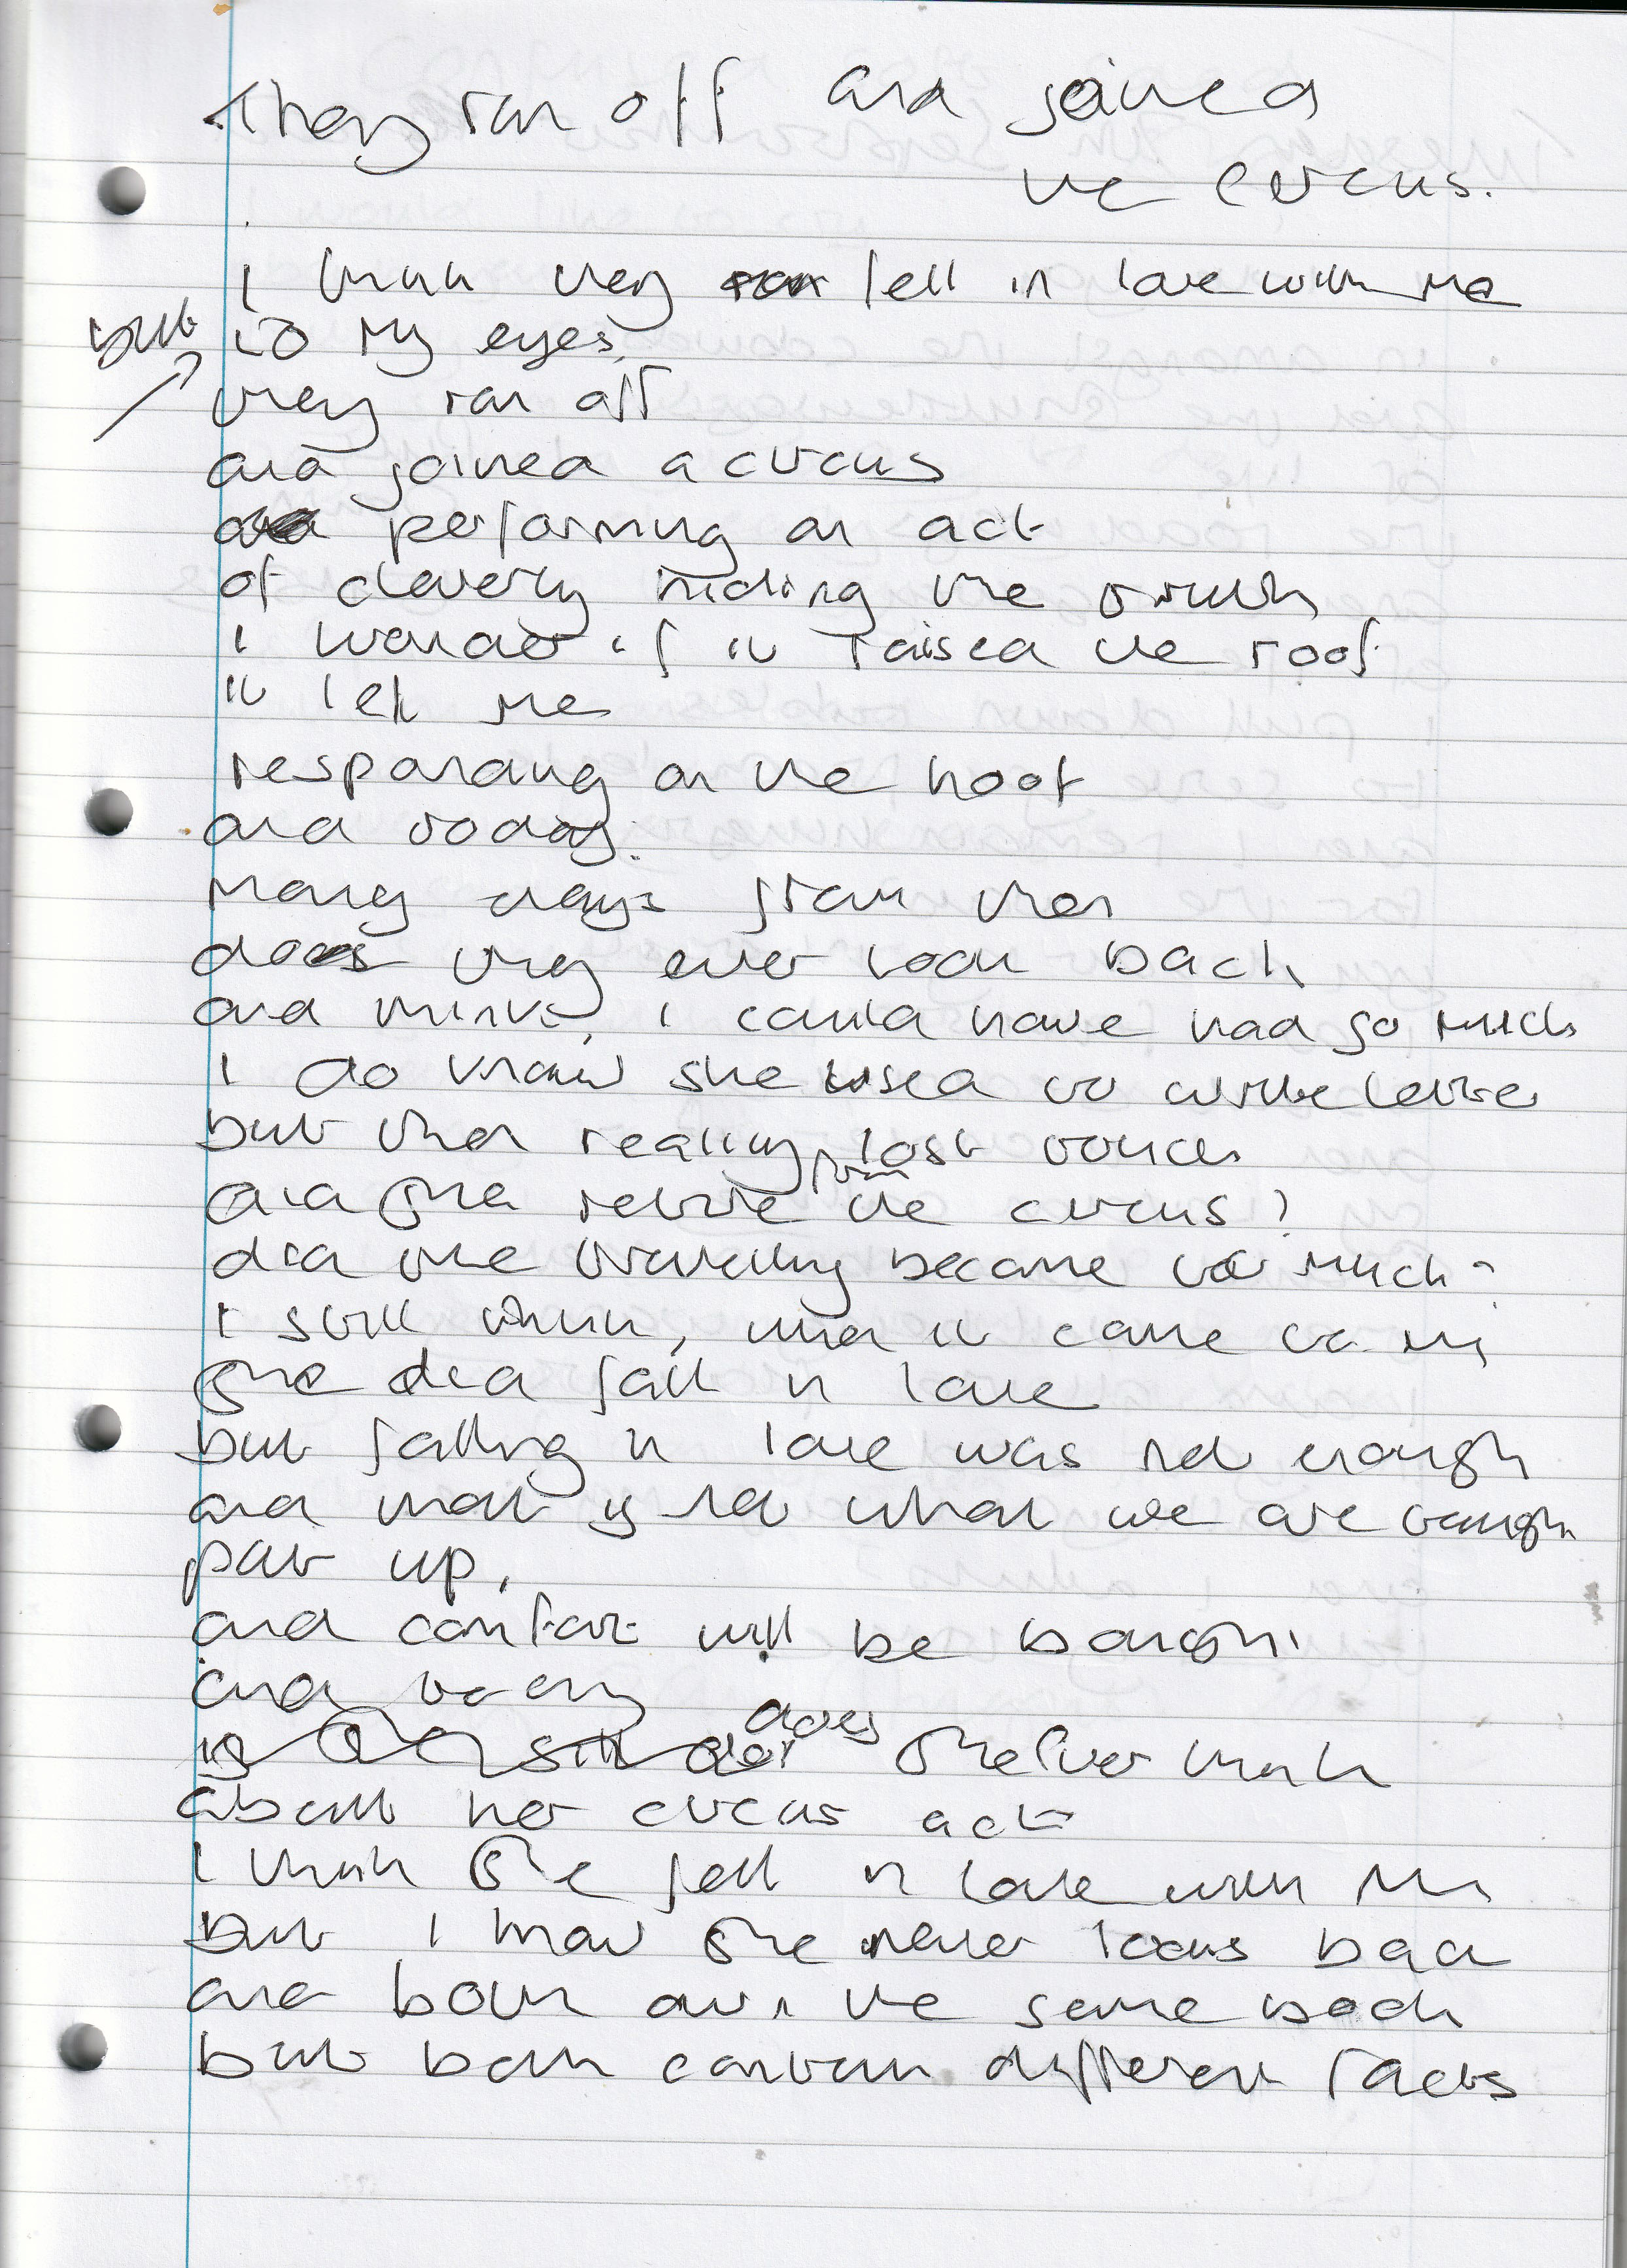 They ran off and joined
the circus.
I think they fell in love with me
but to my eyes,
they ran off
and joined a circus
performing an act
of cleverly hiding the truth
I wonder if it raised the roof
it left me
responding on the hoof
and today.
Many days from then
does they ever look back
and think, I could have had so much
I do know she used to write letter
but then really lost touch
did she retire from the circus?
did the travelling become too much?
I still think, when it came to my
she did fall in love
but falling in love was not enough
and that is not what we are taught
part up,
and comfort will be bought
and today
does she ever think
about her circus act
I think she fell in love with my
but I know she never looks back
and both are in the same book
but both contain different facts